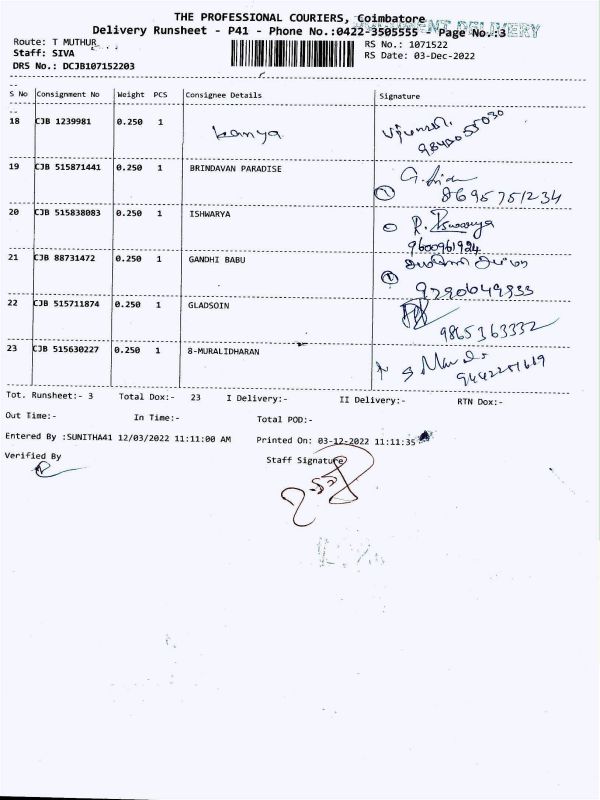 THE PROFESSIONAL COURIERS, Coimbatore
DOCUMENT DELIVERY
Delivery Runsheet - P41 - Phone No.:0422-3505555 Page No.:3
Route: T MUTHUR RS No.: 1071522
Staff: SIVA RS Date: 03-Dec-2022
DRS No.: DCJB107152203
S No Consignment No Weight PCS Consignee Details Signature
18 CJB 1239981 0.250 1 kanya
9843055030
19 CJB 515871441 0.250 1 BRINDAVAN PARADISE
8695751234
20 CJB 515838083 0.250 1 ISHWARYA
9600961924
21 CJB 88731472 0.250 1 GANDHI BABU
9290049933
22 CJB 515711874 0.250 1 GLADSOIN
9865363332
23 CJB 515630227 0.250 1 8-MURALIDHARAN
Tot. Runsheet:- 3 Total Dox:- 23 I Delivery:- II Delivery:- RTN Dox:-
Out Time:- In Time:- Total POD:-
Entered By :SUNITHA41 12/03/2022 11:11:00 AM Printed On: 03-12-2022 11:11:35
Verified By Staff Signature